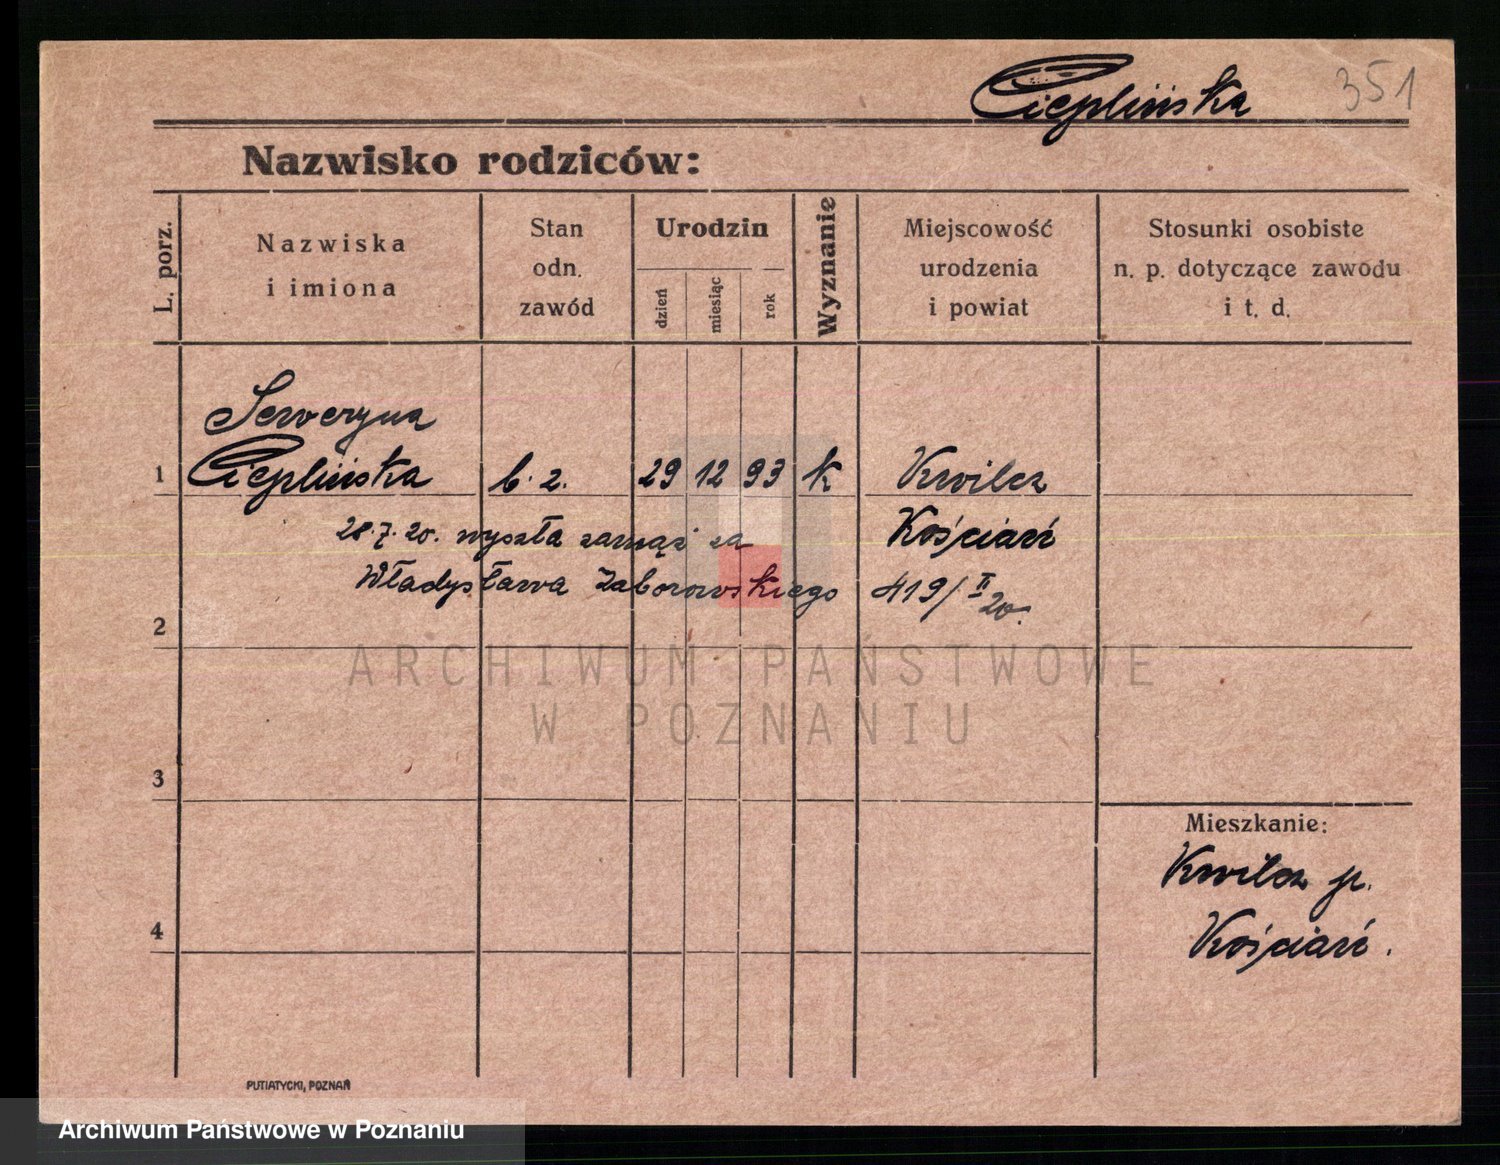 Cieplińska 351
Nazwisko rodziców:
L. porz.
Nazwiska
i imiona
Stan
odn.
zawód
Urodzin
dzień
miesiąc
rok
Wyznanie
Miejscowość
urodzenia
i powiat
Stosunki osobiste
n. p. dotyczące zawodu
i t. d.
Seweryna
1 Cieplińska b. z. 29 12 93 k Kwilcz
28.7.20. wyszła zamąż za Kościań
Władysława Zaborowskiego 419/II 20.
2
ARCHIWUM PAŃSTWOWE
W POZNANIU
3
Mieszkanie:
Kwilcz p.
4 Kościań.
PUTIATYCKI, POZNAŃ
Archiwum Państwowe w Poznaniu